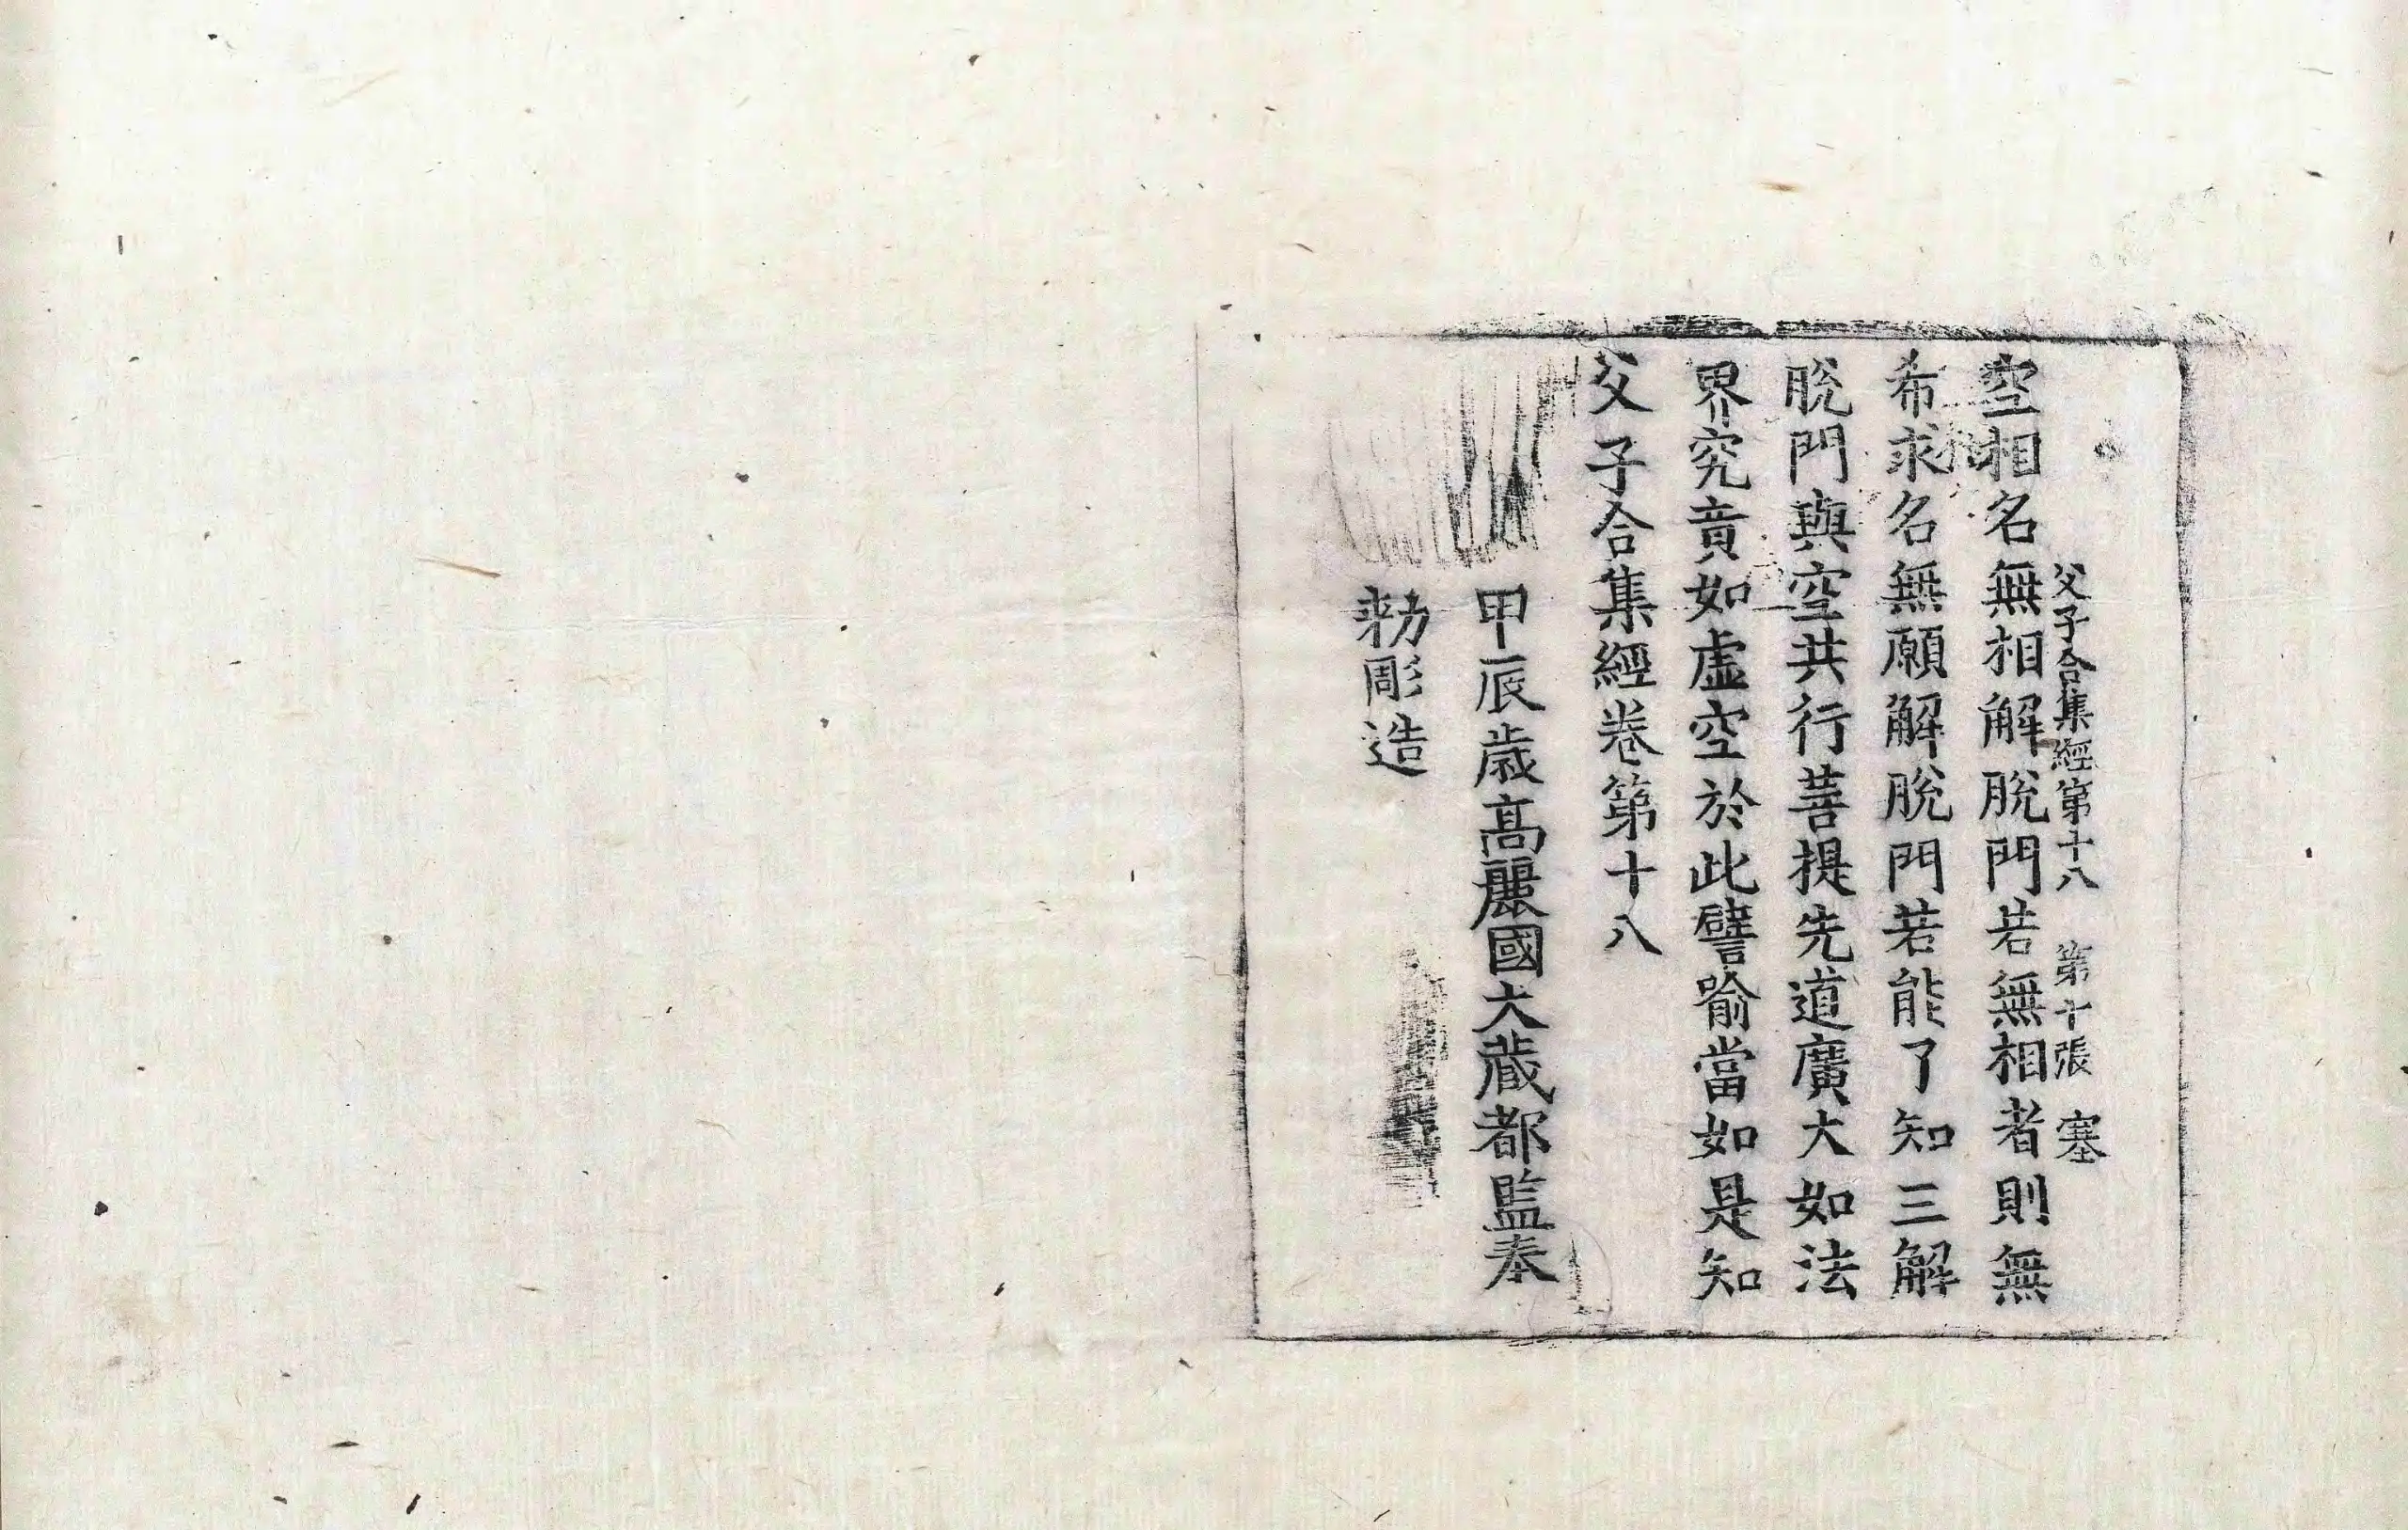 父子合集經第十八 第十張 塞
空相名無相解脫門若無相者則無
希求名無願解脫門若能了知三解
脫門與空共行菩提先道廣大如法
界究竟如虛空於此譬喻當如是知
父子合集經卷第十八
甲辰歲高麗國大藏都監奉
勑彫造